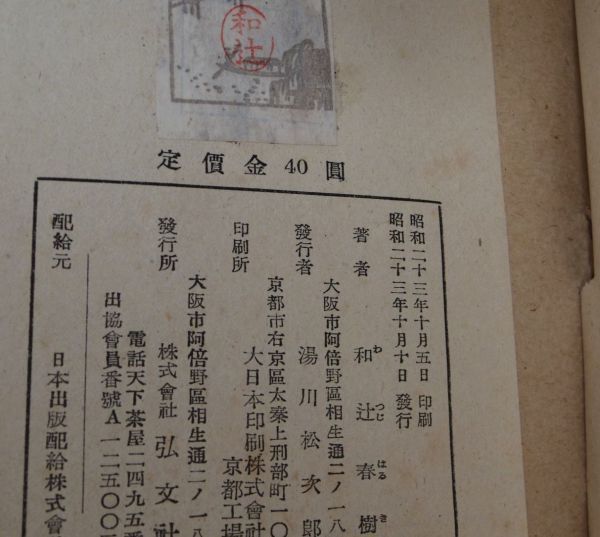 和辻
定價金40圓
昭和二十三年十月五日 印刷
昭和二十三年十月十日 發行
著者 和辻春樹
わ つじ はる き
大阪市阿倍野區相生通二ノ一八
發行者 湯川松次郎
京都市右京區太秦上刑部町一〇
印刷所 大日本印刷株式會社
京都工場
大阪市阿倍野區相生通二ノ一八
發行所 株式會社 弘文社
電話天下茶屋二四九五番
出協會員番號A一二五〇〇
配給元 日本出版配給株式會